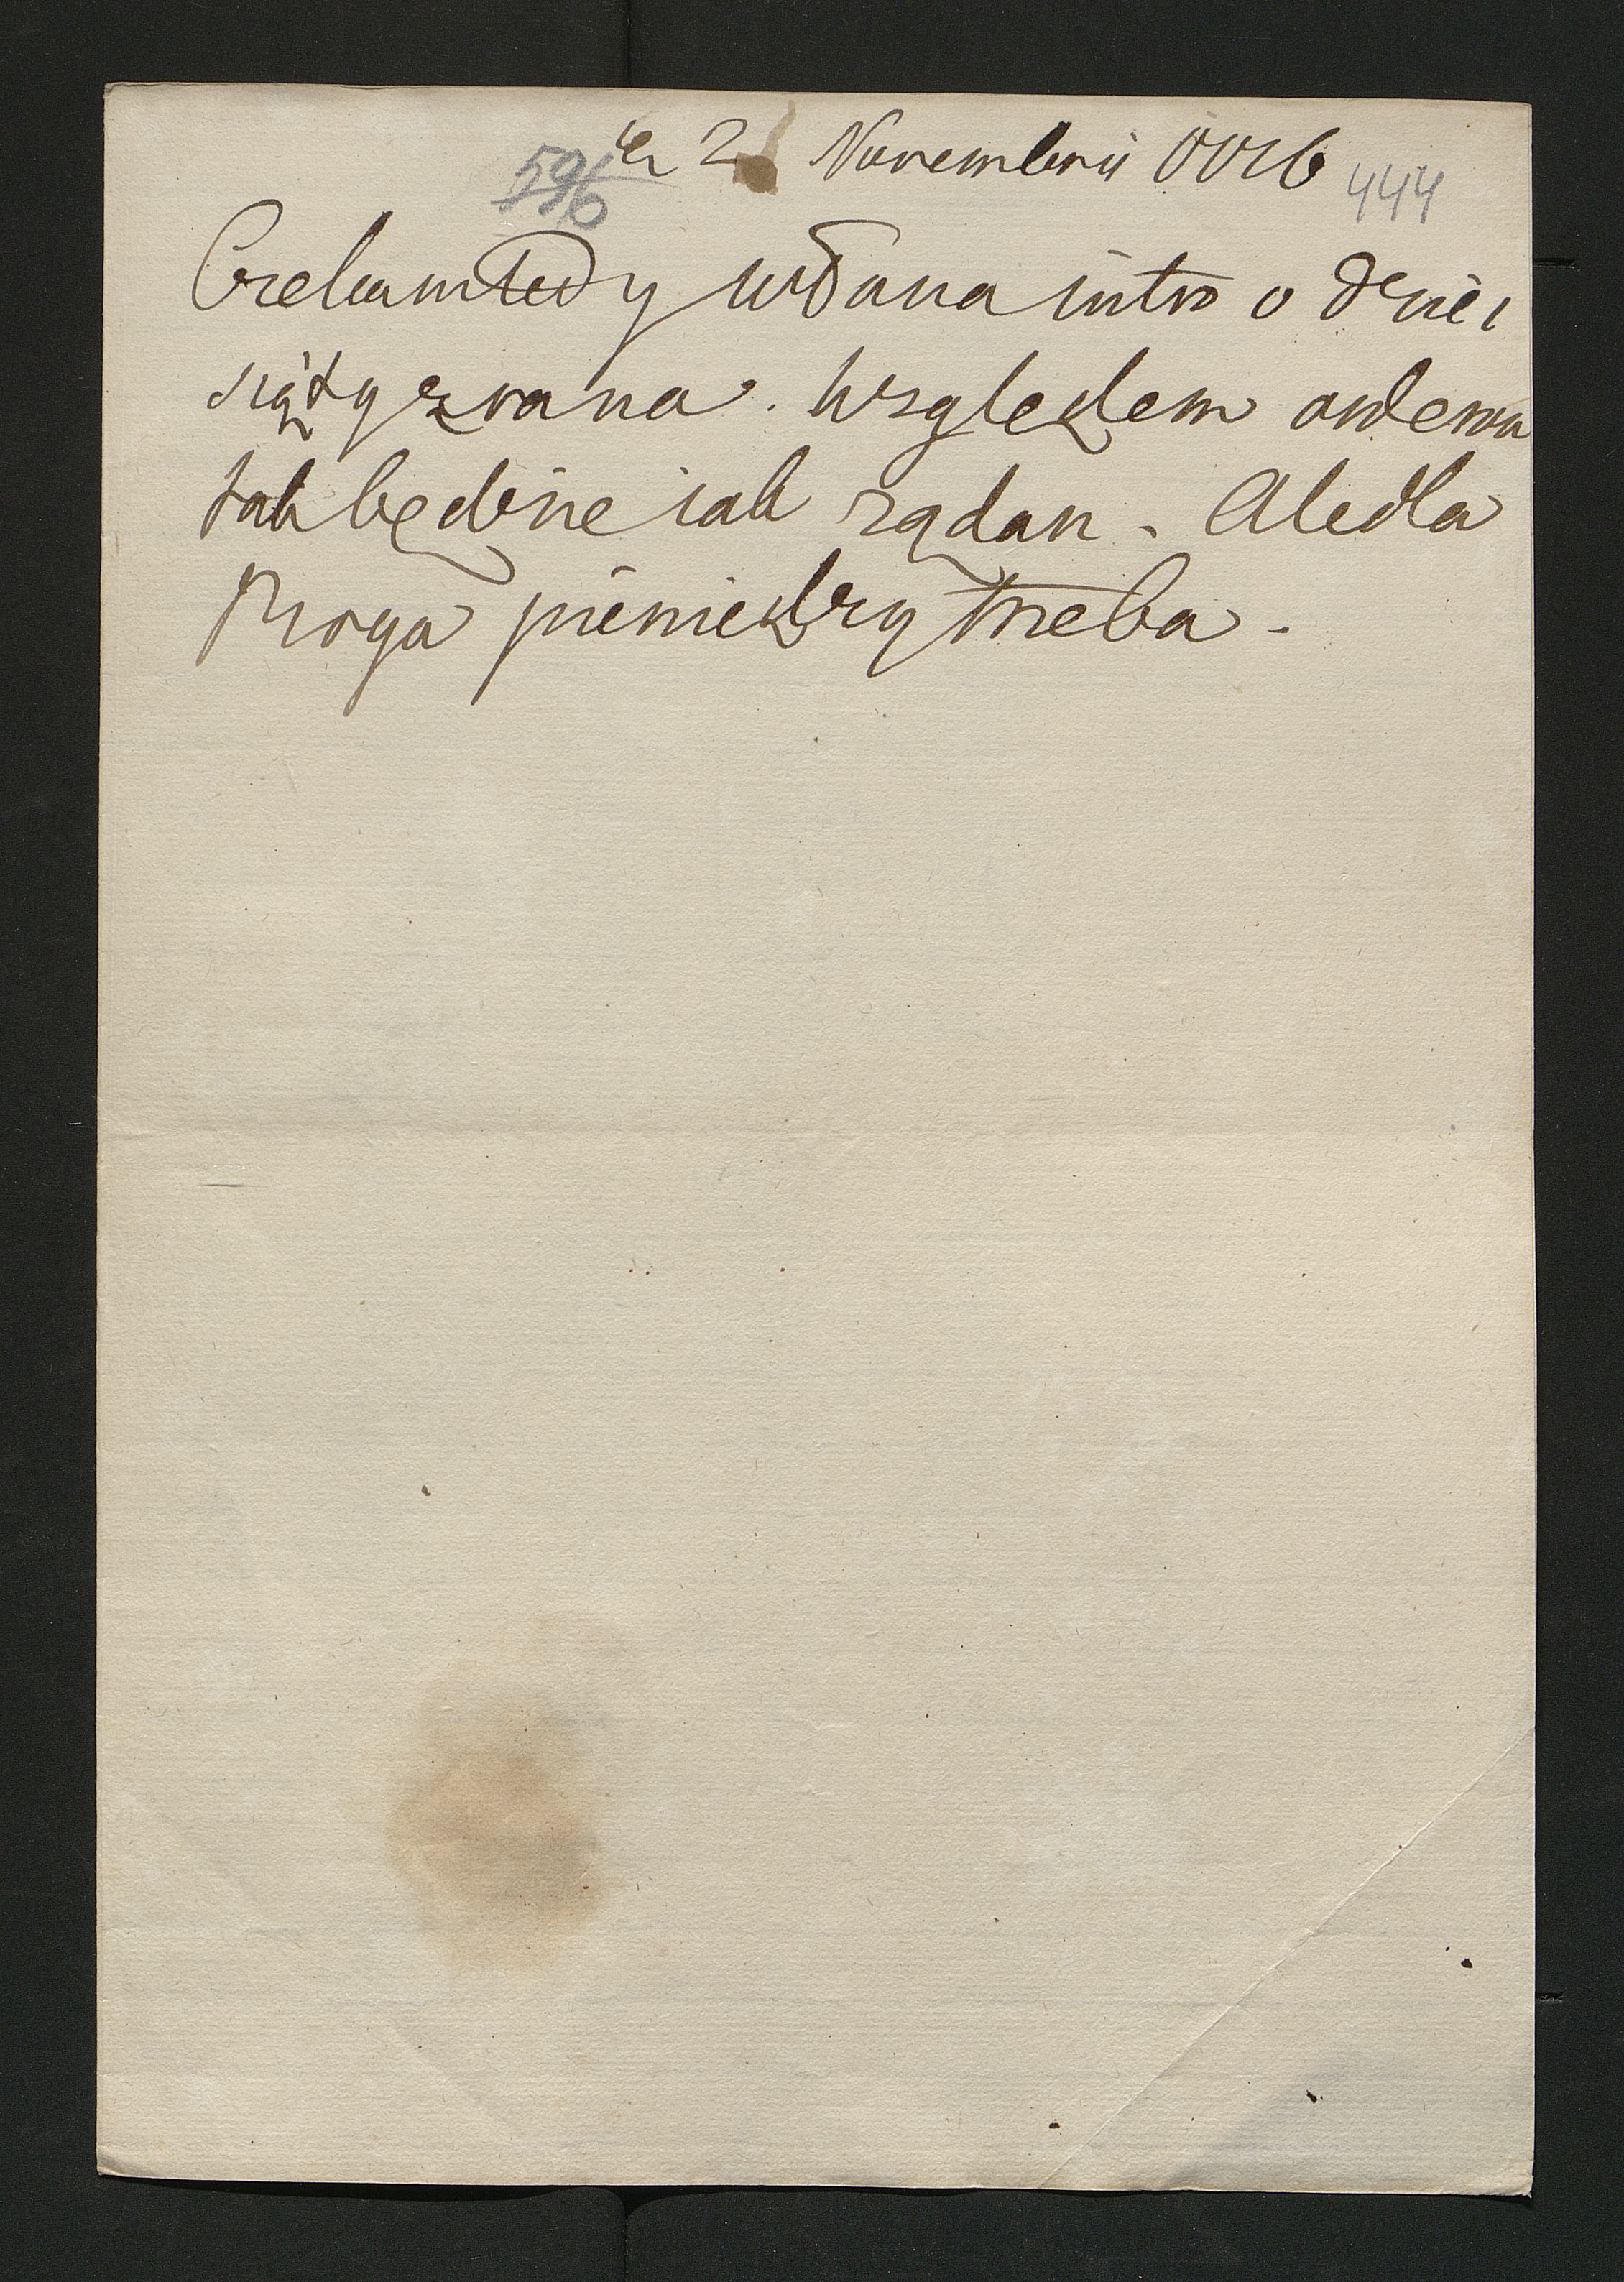 596
2 Novembris 444
Czekam tedy WPana iutro o dzie
siąty zrana. Względem orderu
tak będzie iak ządan. Ale dla
Boga pieniedzy trzeba.